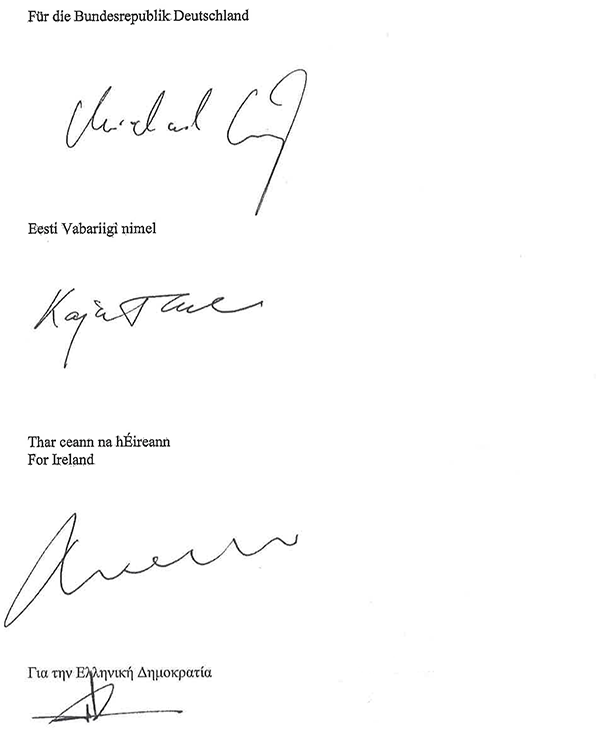 Für die Bundesrepublik Deutschland
Michael
Eesti Vabariigi nimel
Kaja
Thar ceann na hÉireann
For Ireland
Για την Ελληνική Δημοκρατία